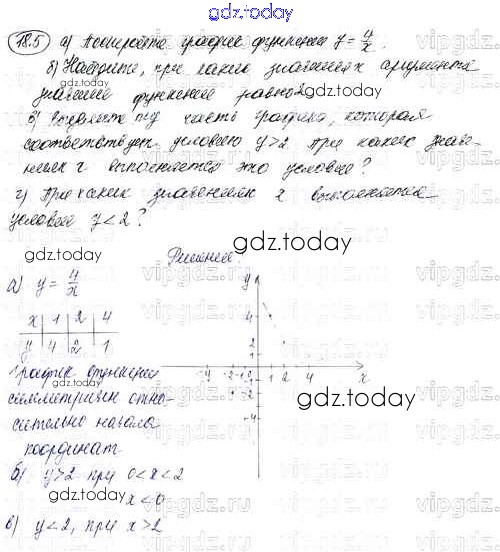 gdz.today
18.5 а) Постройте график функции y = 4/x.
gdz.today
б) Найдите, при каких значениях аргумента
значение функции равно 2
gdz.today
в) выделите ту часть графика, которая
соответствует условию y>2. При каких значе-
ниях x выполняется это условие?
г) При каких значениях x выполняется
условие y<2?
gdz.today
Решение:
а) y = 4/x
x 1 2 4
y 4 2 1
График функции
симметричен отно-
сительно начала
координат
y
4
2
1
-4 -2 -1 1 2 4 x
-2
-4
gdz.today
б) y>2 при 0<x<2
gdz.today
x<0
в) y<2, при x>2
gdz.today
vipgdz.ru